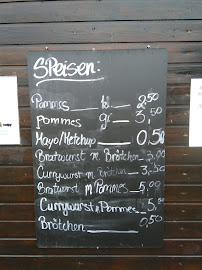 Speisen:
Pommes kl. 2,50
Pommes gr. 3,50
Mayo/Ketchup 0,50
Bratwurst m. Brötchen 3,00
Currywurst m. Brötchen 3,50
Bratwurst m Pommes 5,00
Currywurst m Pommes 5,50
Brötchen 0,50